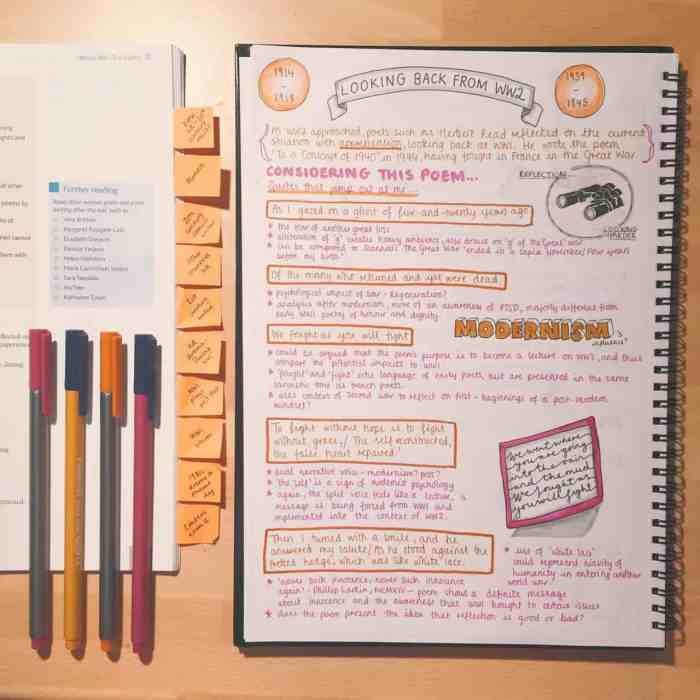 Further reading
Vera Brittain
Margaret Postgate Cole
Elizabeth Daryush
Eleanor Farjeon
Sara Teasdale
Katharine Tynan
1914
-
1918
LOOKING BACK FROM WW2
1939
-
1945
As WW2 approached, poets such as Herbert Read reflected on the current
situation with apprehension, looking back at WW1. He wrote the poem
'To a Conscript of 1940' in 1944, having fought in France in the Great War
CONSIDERING THIS POEM...
Quotes that jump out at me...
REFLECTION
LOOKING
HARDER
As I gazed on a ghost of five-and-twenty years ago
the loss of another great loss
alliteration of 'g' creates heavy ambience, also draws on 'g' of the 'Great' war
can be compared to Scannell 'The Great War' 'ended in a sepia November/Four years
before my birth'
Of the many who returned and yet were dead
psychological impact of war - degeneration?
analysis after modernism, more of an awareness of PTSD, majorly different from
early war poetry of honour and dignity
MODERNISM
influence?
We fought as you will fight
could be argued that the poem's purpose is to become a lecture on WW1, and thus
compare the potential impacts to WW2
'fought' and 'fight' echo language of early poets, but are presented in the same
sardonic tone as trench poets
uses context of Second War to reflect on first - beginnings of a post-modern
mindset?
To fight without hope is to fight
without grace,/ The self reconstructed,
the false heart repaired'
dual narrative voice - modernism? post?
'the self' is a sign of modernist psychology
again, the split voice feels like a lecture, a
message is being forced from WW1 and
implemented into the context of WW2.
We went where
you are going
into the rain
and the mud
We fought as
you will fight
Then I turned with a smile, and he
answered my salute/ As he stood against the
fretted hedge, which was like white lace.
use of 'white lace'
could represent naivety of
humanity in entering another
world war
'never such innocence, never such innocence
again' - Phillip Larkin, MCMXIV - poem shows a definite message
about innocence and the awareness that war bought to certain issues
does the poem present the idea that reflection is good or bad?